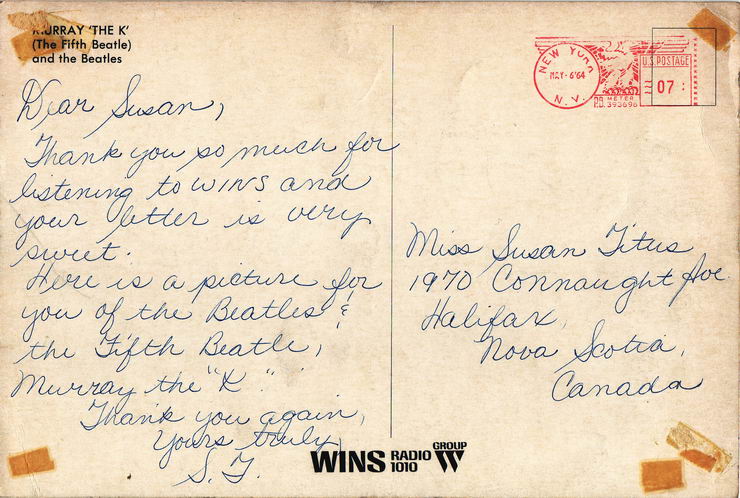 MURRAY 'THE K'
(The Fifth Beatle)
and the Beatles
Dear Susan,
Thank you so much for
listening to WINS and
your letter is very
sweet.
Here is a picture for
you of the Beatles &
the Fifth Beatle,
Murray the "K".
Thank you again,
Yours truly,
S. T.
NEW YORK
MAY-6'64
N.Y.
U.S. POSTAGE
07
P.B. METER
393696
Miss Susan Titus
1970 Connaught Ave.
Halifax,
Nova Scotia,
Canada
WINS RADIO 1010 GROUP W